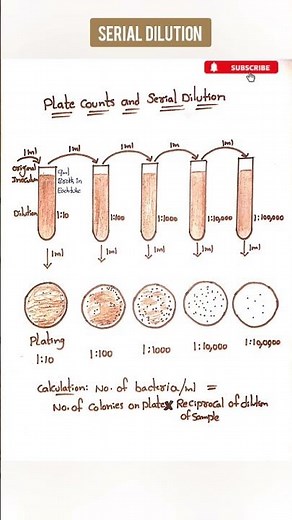 SERIAL DILUTION
SUBSCRIBE
Plate Counts and Serial Dilution
1ml 1ml 1ml 1m 1ml
Original Inoculum
9ml Broth in Each tube
Dilution 1:10 1:100 1:1000 1:10,000 1:100,000
1ml 1ml 1ml 1ml 1ml
Plating
1:10 1:100 1:1000 1:10,000 1:10,0000
Calculation: No. of bacteria/ml =
No. of Colonies on plate X Reciprocal of dilution
of Sample